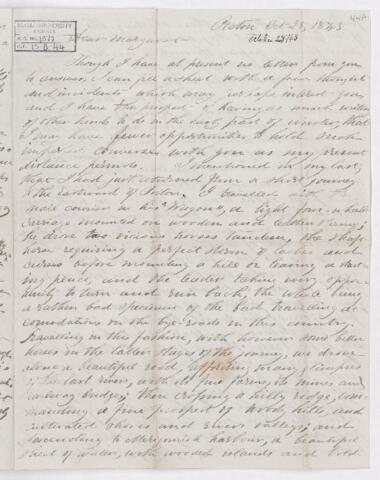 Pictou Oct 28, 1843
October 28/43
My Dear Margaret
Though I have at present no letter from you
to answer, I can fill a sheet with a few thoughts
and incidents which may perhaps interest you
and I have the prospect of having so much writing
of other kinds to do in the early part of winter, that
I may have fewer opportunities to hold such
imperfect converse with you as my present
distance permits. I mentioned in my last
that I had just returned from a short journey
to the eastward of Pictou. I travelled in the
mail courier in his "Wagon", a light four-wheeled
carriage mounted on wooden and leather springs;
he drove two vicious horses tandem, the shaft
horse requiring a perfect storm of lashes and
curses before mounting a hill or leaving a
place, and the leader taking every oppor-
tunity to turn and run back, the whole being
a rather bad specimen of the bad travelling ac-
comodations on the bye-roads in this country.
Travelling in this fashion, with however some better
horses in the latter stages of the journey, we drove
along a beautiful road, affording many glimpses
of the East river, with its fine farms, its mines and
bridge; then crossing a hilly ridge, com-
manding a fine prospect of woody hills, and
cultivated shores and river valleys; and
descending to Merigomish harbour, a beautiful
sheet of water, with wooded islands and bold